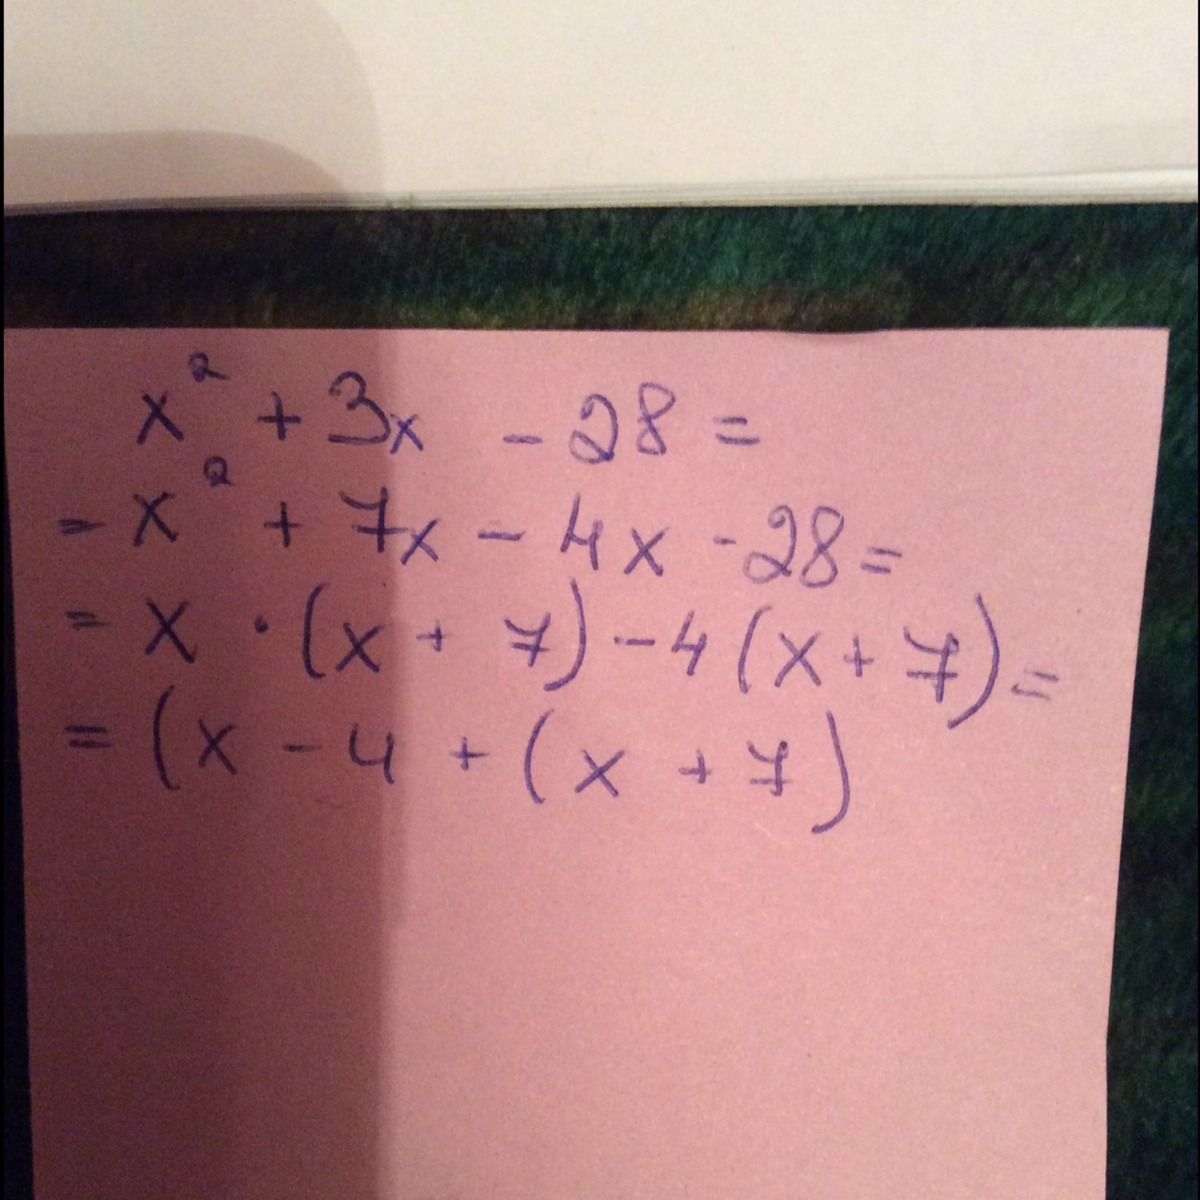 x² + 3x - 28 =
= x² + 7x - 4x - 28 =
= x · (x + 7) - 4 (x + 7) =
= (x - 4 + (x + 7)